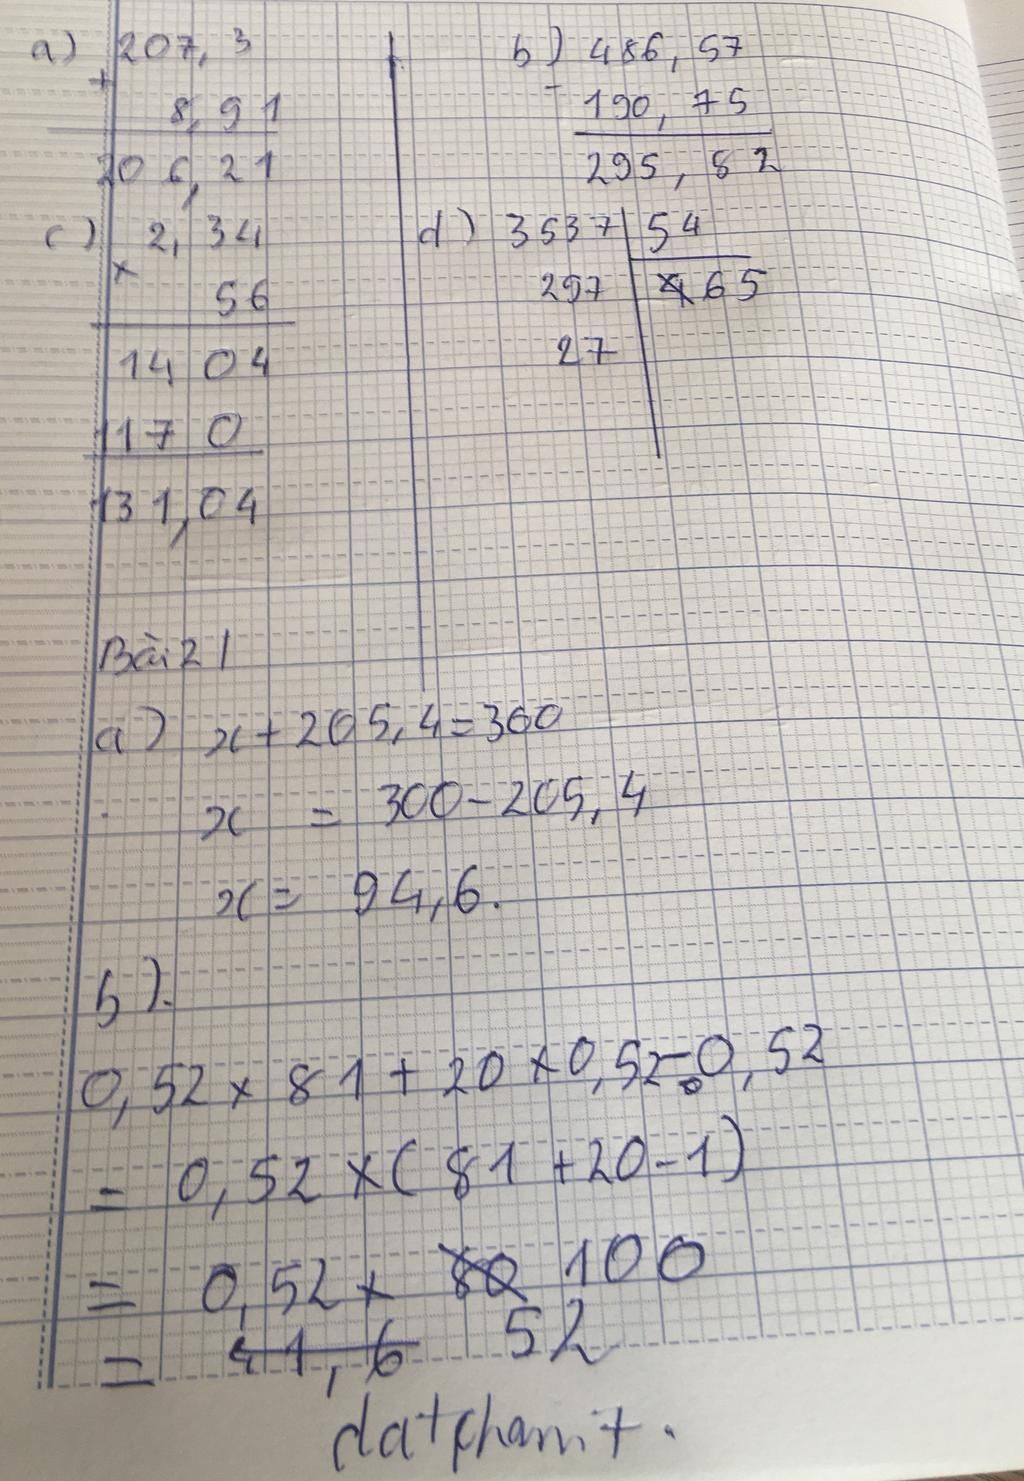 a) 207,3
+
8,91
206,21
b) 486,57
-
190,75
295,82
c) 2,34
×
56
14 04
117 0
131,04
d) 3537 54
297 65
27
Bài 2/
a) x + 205,4 = 300
x = 300 - 205,4
x = 94,6.
b).
0,52 × 81 + 20 × 0,52 - 0,52
= 0,52 × (81 + 20 - 1)
= 0,52 × 80 100
= 41,6 52